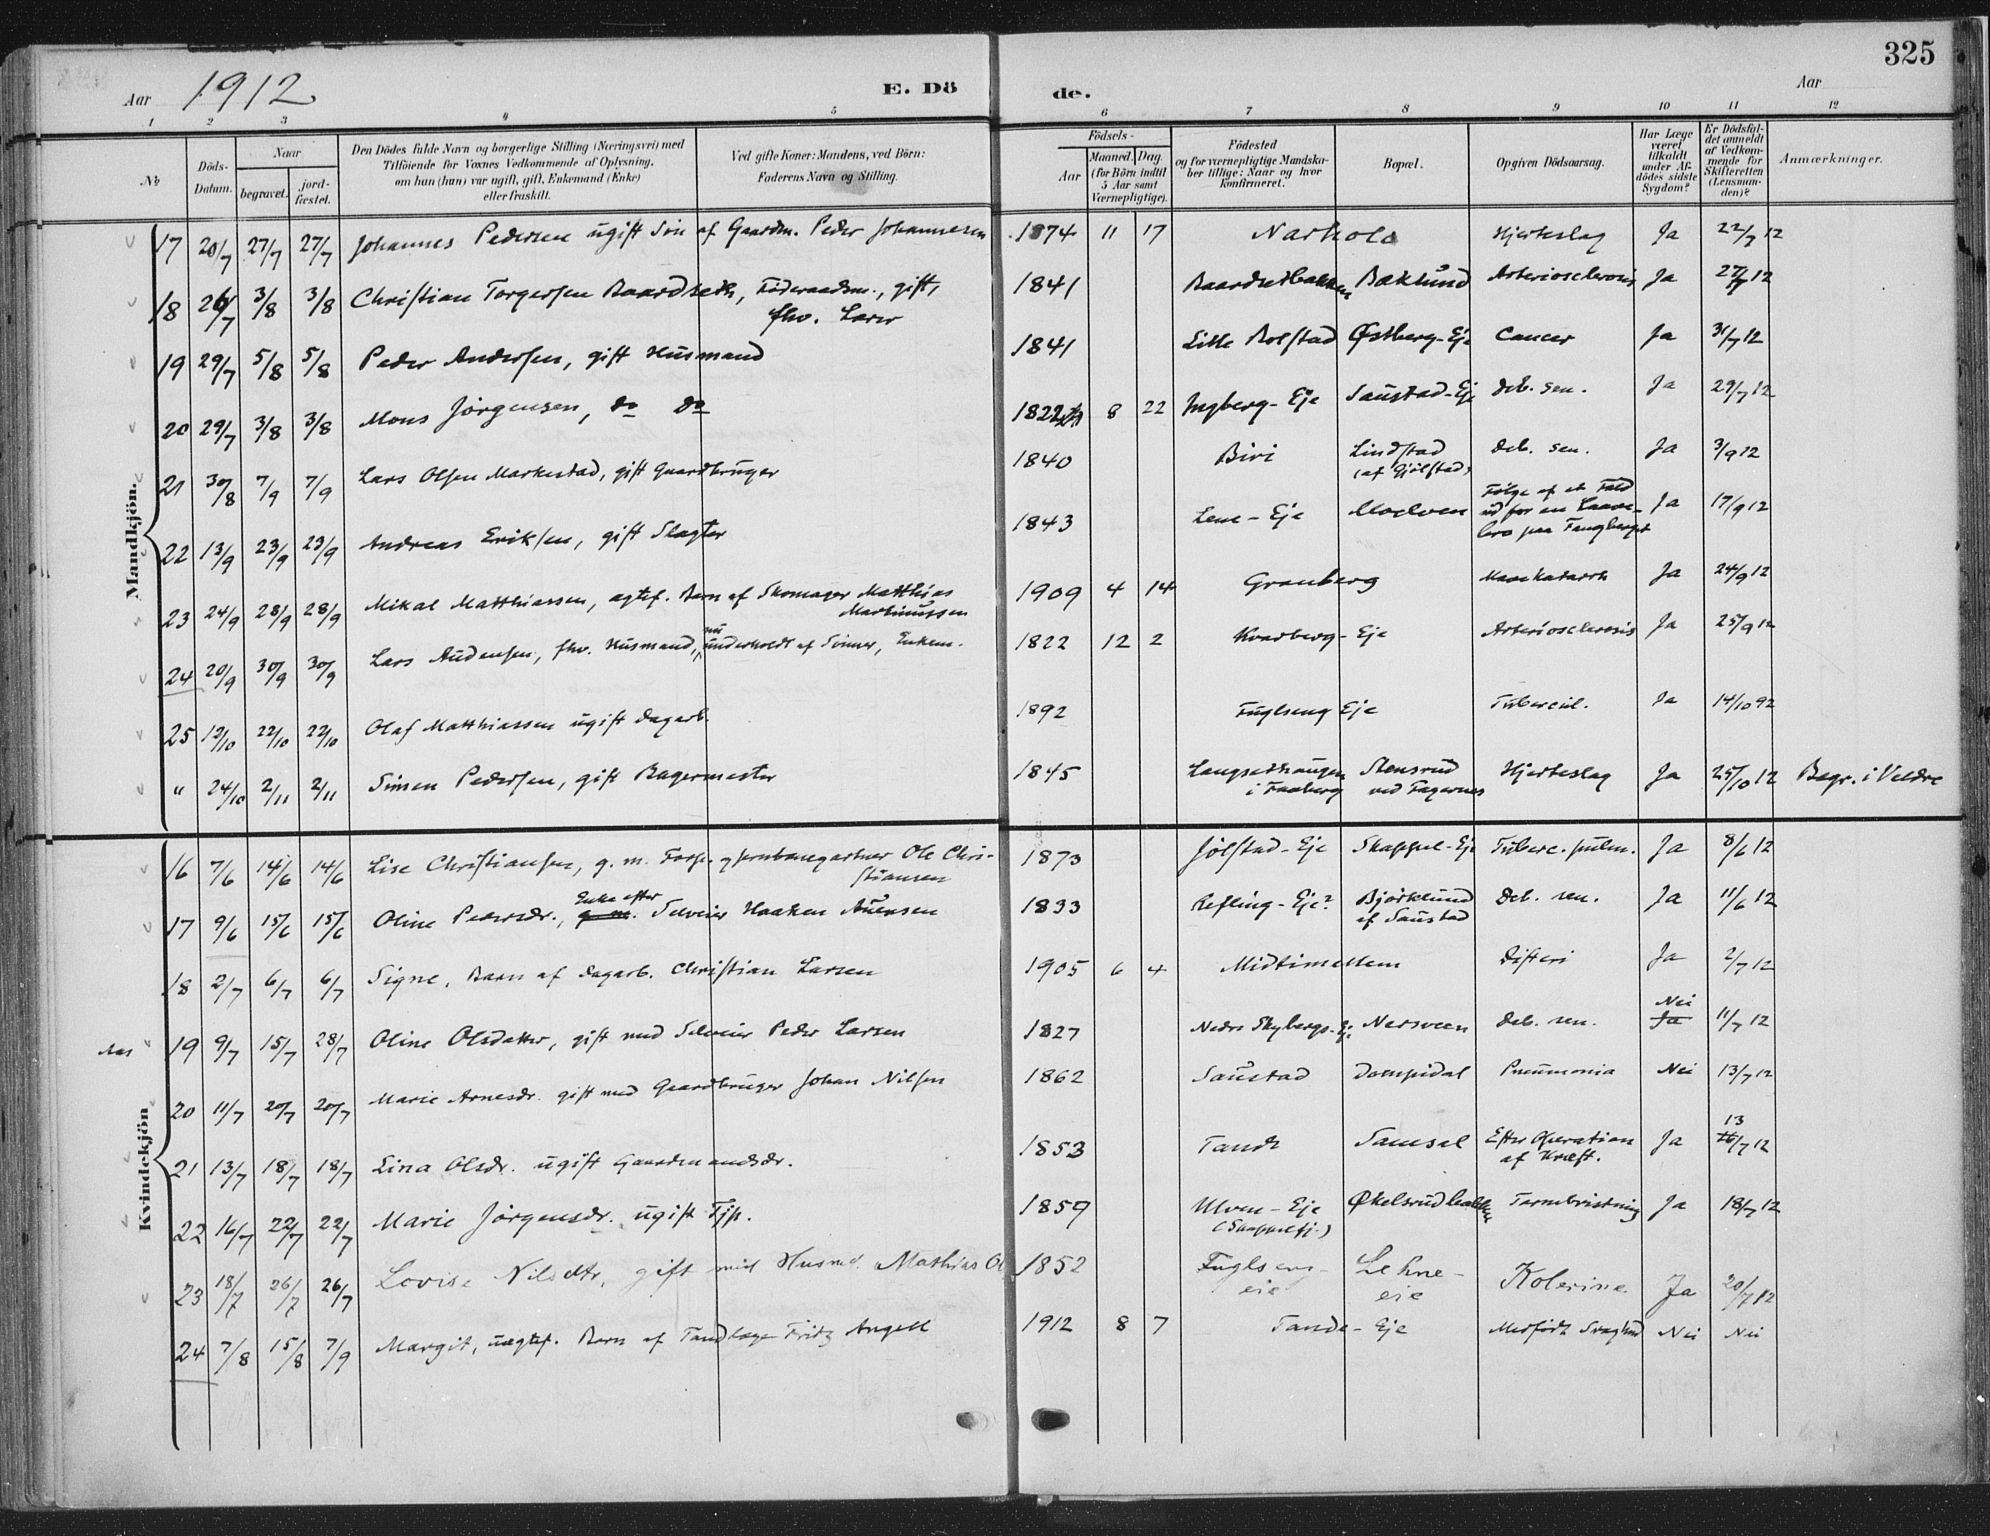 325
Aar 1912
E. Döde.
Aar
1 2 3 4 5 6 7 8 9 10 11 12
№
Döds-Datum.
Naar
begravet.
jord-fæstet.
Den Dödes fulde Navn og borgerlige Stilling (Næringsvei) med
Tilföiende for Voxnes Vedkommende af Oplysning,
om han (hun) var ugift, gift, Enkemand (Enke)
eller fraskilt.
Ved gifte Koner: Mandens, ved Börn:
Faderens Navn og Stilling.
Födsels-
Aar
Maaned. Dag.
(for Börn indtil 5 Aar samt Værnepligtige).
Födested
og for værnepligtige Mandskaber tillige: Naar og hvor konfirmeret.
Bopæl.
Opgiven Dödsaarsag.
Har Læge været tilkaldt under Afdödes sidste Sygdom?
Er Dödsfaldet anmeldt af Vedkommende for Skifteretten (Lensmanden)?
Anmærkninger.
Mandkjön.
17 20/7 27/7 27/7 Johannes Pedersen ugift Søn af Gaardm. Peder Johannesen 1874 11 17 Hjerteslag Ja 22/7 12
18 26/7 3/8 3/8 Christian Torgersen Baardseth, Føderaadsm., gift, 1841 Baardsetbakken Baklund Arteriosclerosis Ja 27/7 12
fhv. Lærer
19 29/7 5/8 5/8 Peder Andersen, gift Husmand 1841 Lille Rolstad Østberg-Eje Cancer Ja 31/7 12
20 29/7 3/8 3/8 Mons Jørgensen, do do 1822 8 22 Saustad-Eje deb. sen. Ja 29/7 12
21 30/8 7/9 7/9 Lars Olsen Markestad, gift Gaardbruger 1840 Biri Lindstad deb. sen. Ja 3/9 12
(af Gjølstad)
22 13/9 23/9 23/9 Andreas Eriksen, gift Slagter 1843 Lene-Eje Moelven Følge af et Fald
ud for en Laavebro paa Fangberget Ja 17/9 12
23 24/9 28/9 28/9 Mikal Matthiassen, ægtef. Barn af Skomager Matthias
Martinussen 1909 4 14 Granberg Mavekatarrh Ja 24/9 12
24 20/9 30/9 30/9 Lars Audensen, fhv. Husmand, nu underholdt af Sønner, Enkem. 1822 12 2 Kvarberg-Eje Arteriosclerosis Ja 25/9 12
25 12/10 22/10 22/10 Olaf Matthiassen ugift dagarb. 1892 Fuglseng Eje Tubercul. Ja 14/10 92
" 24/10 2/11 2/11 Simen Pedersen, gift Bagermester 1845 Langsethaugen Stensrud Hjerteslag Ja 25/10 12 Begr. i Veldre
i Faaberg ved Fagernes
Kvindekjön
16 7/6 14/6 14/6 Lise Christiansen, g. m. Forp. og Jernbanegartner Ole Chri-
stiansen 1873 Jølstad-Eje Skappel-Eje Tuberc. pulm. Ja 8/6 12
17 9/6 15/6 15/6 Oline Pedersdr., Enke efter g. m. Selveier Haaken Auensen 1833 Refling-Eje? Bjørklund deb. sen. Ja 11/6 12
af Saustad
18 2/7 6/7 6/7 Signe, Barn af dagarb. Christian Larsen 1905 6 4 Midtimellem Difteri Ja 2/7 12
Aas 19 9/7 15/7 28/7 Oline Olsdatter, gift med Selveier Peder Larsen 1827 Nedre Skybergs-Ej. Nersveen deb. sen. Nei Ja 11/7 12
20 11/7 20/7 20/7 Marie Arnesdr. gift med Gaardbruger Johan Nilsen 1862 Saustad Dompidal Pneumonia Nei 13/7 12
21 13/7 18/7 18/7 Lina Olsdr. ugift Gaardmandsdr. 1853 Tande Samsal Efter Operation Ja 13 16/7 12
af Kræft.
22 16/7 22/7 22/7 Marie Jørgensdr. ugift Tjp. 1859 Ulven-Eje Økelsrudbakken Tarmbristning Ja 18/7 12
23 18/7 26/7 26/7 Lovise Nilsdtr, gift med Husmd. Mathias Ol 1852 Fuglseng-eie Lehne-eie Kolerine Ja 20/7 12
24 7/8 15/8 7/9 Margit, uægtef. Barn af Tandlæge Fritz Angell 1912 8 7 Tande-Eje Medfødt Svaghed Nei Nei